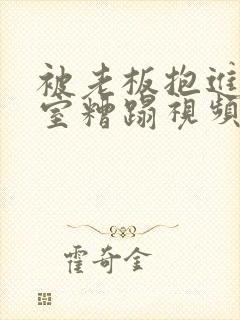 被老板抱进
室糟蹋視頻
霍奇金